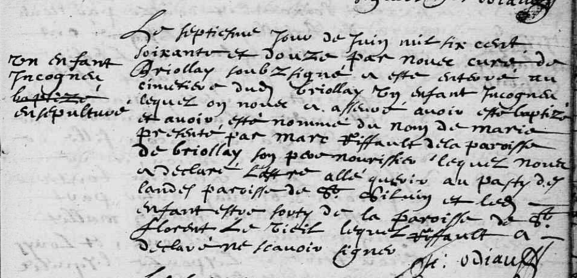 Un enfant
Incogneu
baptizé
ensepulturé
Le septiesme Jour de Juin mil six cent
soixante et douze par nous curé de
Briollay soubz signé a esté enterré au
cimetiere dud Briollay Un enfant Incogneu
lequel on nous a asseuré avoir esté baptizé
et avoir esté nommé du nom de marie
presenté par marc Riffault de la paroisse
de briollay son pere nourissier lequel nous
a declaré l'estre allé querir au pasty des
landes paroisse de St Silvin et led
enfant estre sorty de la paroisse de St
florent Le Vieil lequel Riffault a
declaré ne scavoir signer